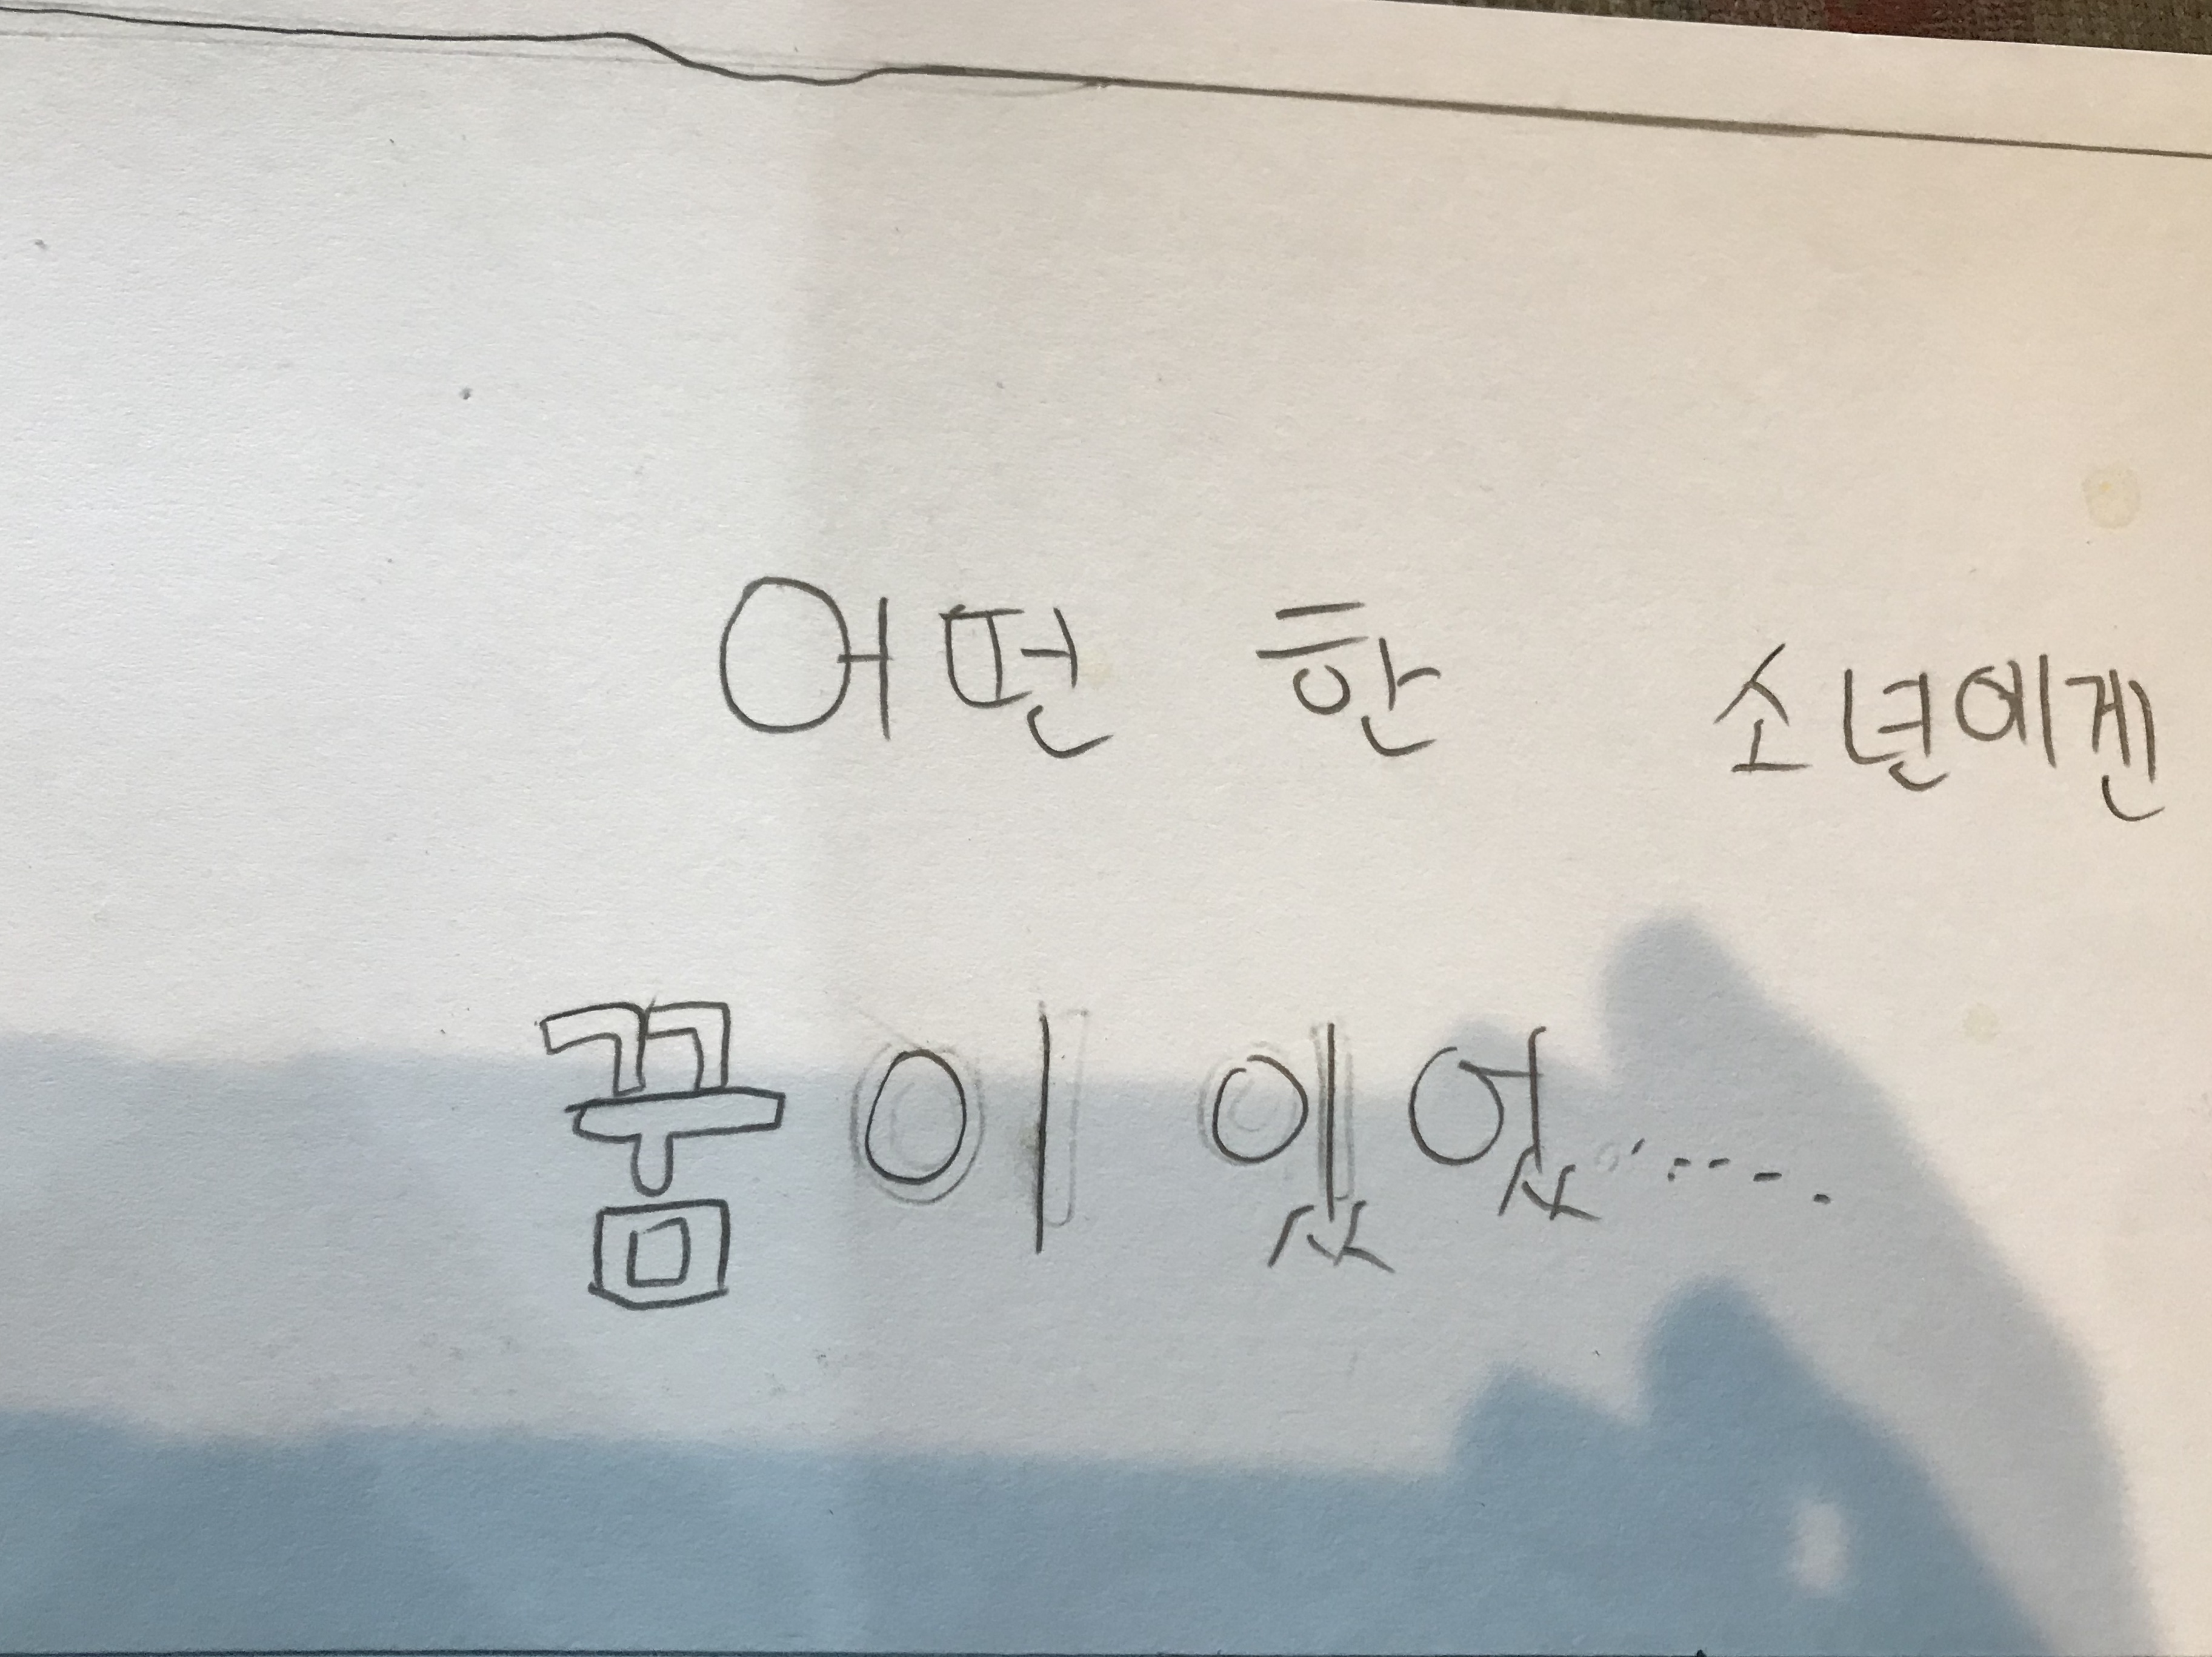 어떤 한 소년에겐
꿈이 있었......